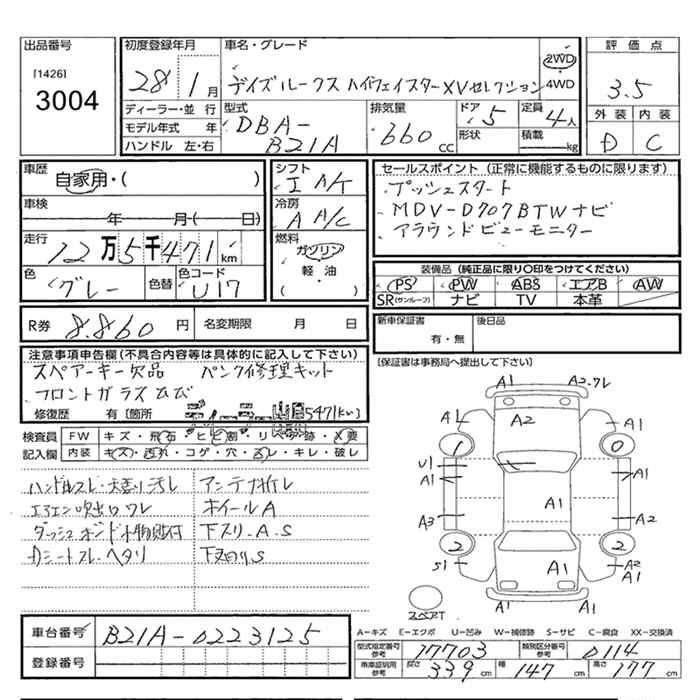 出品番号
[1426]
3004
初度登録年月
28年 1月
車名・グレード
デイズルークス ハイウェイスターXVセレクション
2WD
4WD
評価点
3.5
外装 内装
D C
ディーラー・並行
モデル年式 年
ハンドル 左・右
型式
DBA-
B21A
排気量
660 cc
ドア 5
形状
定員 4人
積載 kg
車歴
自家用・( )
車検
年 月( 日)
走行
12万5千471km
色
グレー
色替
色コード
U17
シフト
I A/T
冷房
A A/C
燃料
ガソリン
軽・油
( )
セールスポイント(正常に機能するものに限ります)
プッシュスタート
MDV-D707BTWナビ
アラウンドビューモニター
装備品(純正品に限り〇印をつけてください)
PS PW ABS エアB AW
SR(サンルーフ) ナビ TV 本革
R券 8.860円 名変期限 月 日
新車保証書
有・無
後日品
[保証書は事務局へ提出して下さい]
注意事項申告欄(不具合内容等は具体的に記入して下さい)
スペアーキー欠品 パンク修理キット
フロントガラスひび
修復歴 有[箇所
5471(い)
検査員
記入欄
FW キズ・飛石・ヒビ割・リペア跡・X要
内装 キズ・汚れ・コゲ・穴・スレ・キレ・破レ
ハンドルスレ・天張り汚レ アンテナ折レ
エアコン吹出口ワレ ホイールA
ダッシュボード小物貼付 下スリ.A.S
Dシートスレ・ヘタリ 下廻りS
車台番号 B21A-0223125
登録番号
A1
A2.ワレ
A1
A2
A1
1
0
U1
A1
A1
A1
A3
A2
2
2
S1
A1
A2
A1
A1
スペアT
A-キズ E-エクボ U-凹み W-補修跡 S-サビ C-腐食 XX-交換済
型式指定番号
参考
17703
類別区分番号
参考
0114
車庫証明用
参考
長さ 339cm 幅 147cm 高さ 177cm